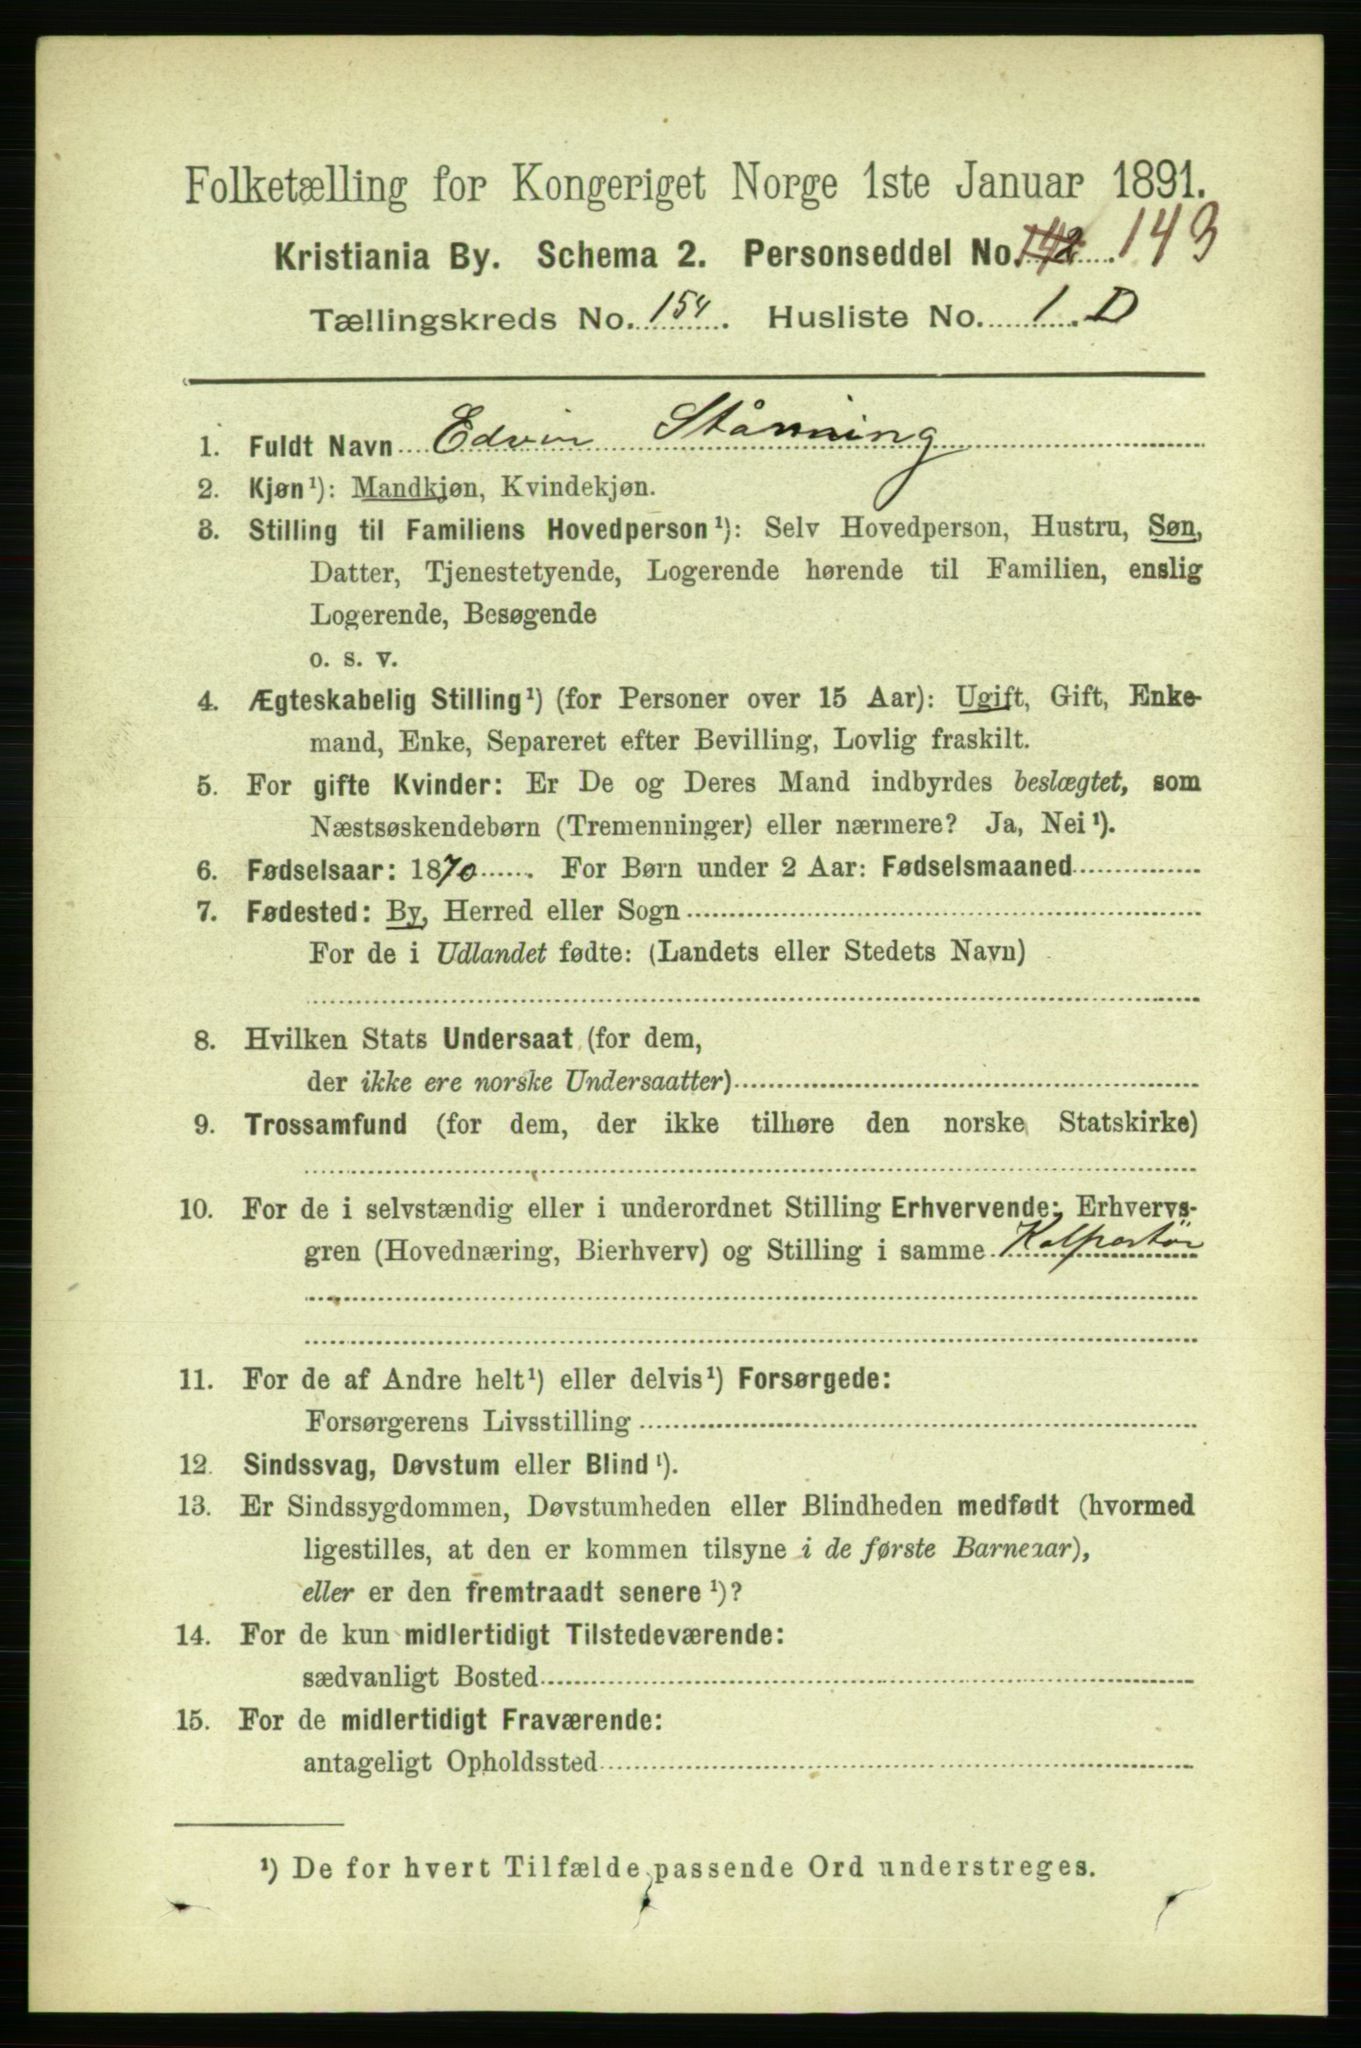 Folketælling for Kongeriget Norge 1ste Januar 1891.
Kristiania By. Schema 2. Personseddel No. 142 143
Tællingskreds No. 154. Husliste No. 1. D
1. Fuldt Navn Edvin Stånning
2. Kjøn¹): Mandkjøn, Kvindekjøn.
3. Stilling til Familiens Hovedperson¹): Selv Hovedperson, Hustru, Søn,
Datter, Tjenestetyende, Logerende hørende til Familien, enslig
Logerende, Besøgende
o. s. v.
4. Ægteskabelig Stilling¹) (for Personer over 15 Aar): Ugift, Gift, Enke-
mand, Enke, Separeret efter Bevilling, Lovlig fraskilt.
5. For gifte Kvinder: Er De og Deres Mand indbyrdes beslægtet, som
Næstsøskendebørn (Tremenninger) eller nærmere? Ja, Nei¹).
6. Fødselsaar: 1870. For Børn under 2 Aar: Fødselsmaaned
7. Fødested: By, Herred eller Sogn
For de i Udlandet fødte: (Landets eller Stedets Navn)
8. Hvilken Stats Undersaat (for dem,
der ikke ere norske Undersaatter)
9. Trossamfund (for dem, der ikke tilhøre den norske Statskirke)
10. For de i selvstændig eller i underordnet Stilling Erhvervende: Erhvervs-
gren (Hovednæring, Bierhverv) og Stilling i samme Kolportør
11. For de af Andre helt¹) eller delvis¹) Forsørgede:
Forsørgerens Livsstilling
12. Sindssvag, Døvstum eller Blind¹).
13. Er Sindssygdommen, Døvstumheden eller Blindheden medfødt (hvormed
ligestilles, at den er kommen tilsyne i de første Barneaar),
eller er den fremtraadt senere¹)?
14. For de kun midlertidigt Tilstedeværende:
sædvanligt Bosted
15. For de midlertidigt Fraværende:
antageligt Opholdssted
¹) De for hvert Tilfælde passende Ord understreges.